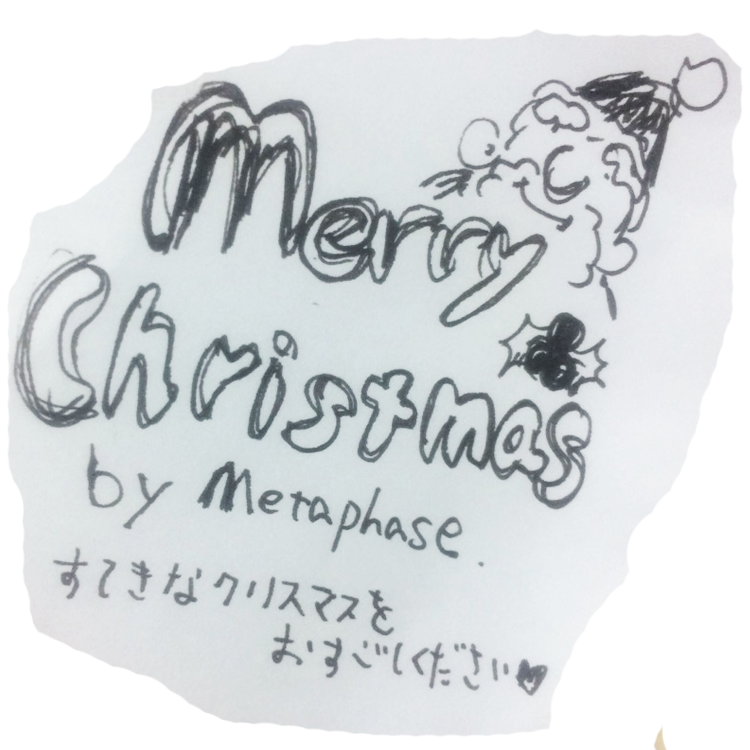 Merry
Christmas
by Metaphase.
すてきなクリスマスを
おすごしください♥